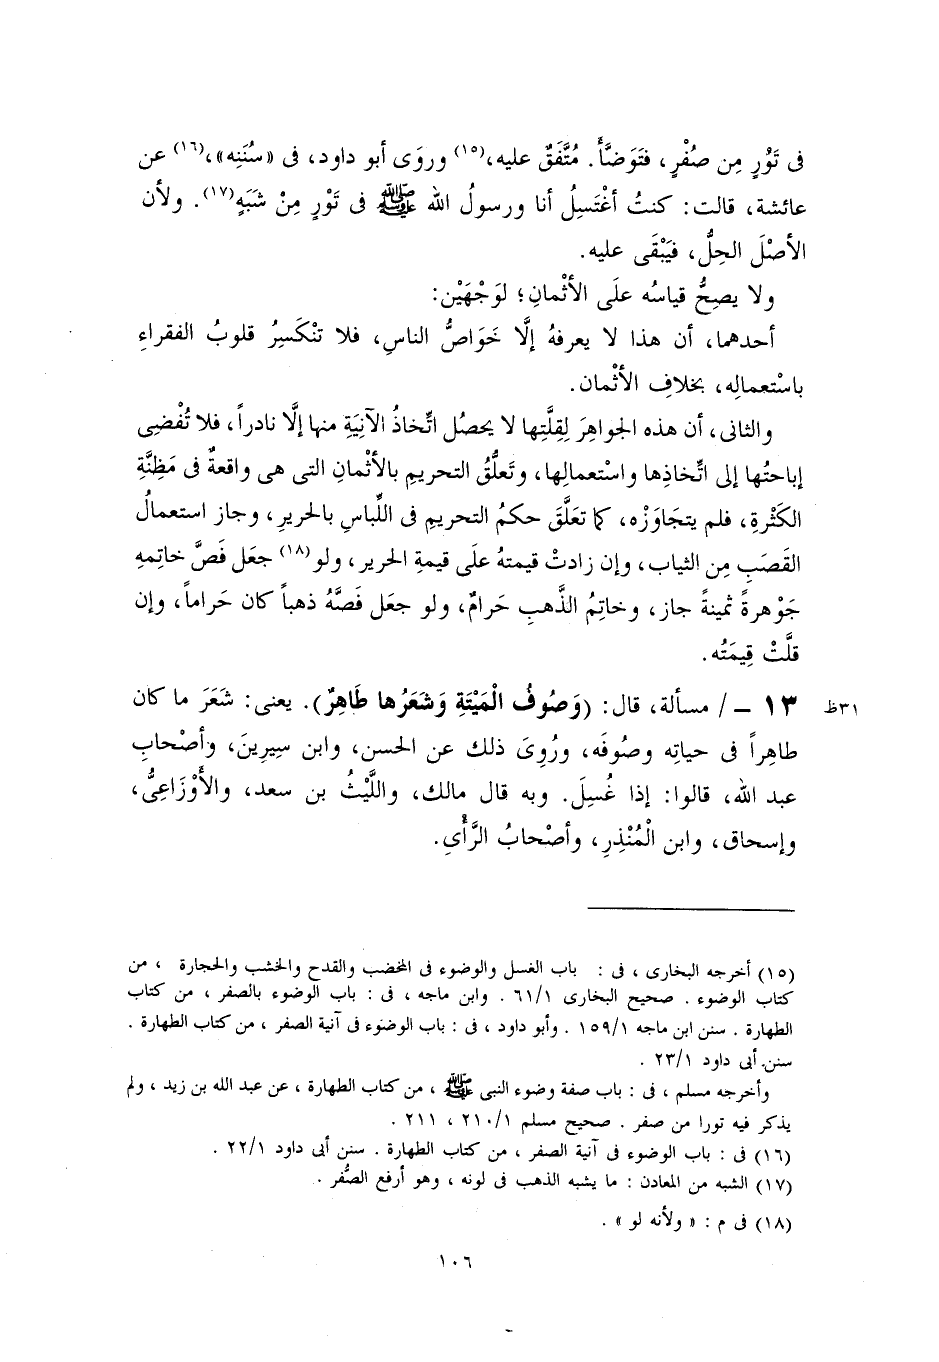 فى تَوْرٍ مِن صُفْرٍ، فتَوَضَّأَ. مُتَّفَقٌ عليه،(١٥) وروَى أبو داود، فى «سُنَنِه»،(١٦) عن
عائشة، قالت: كنتُ أغْتَسِلُ أنا ورسولُ الله ﷺ فى تَوْرٍ مِنْ شَبَهٍ(١٧). ولأن
الأصْلَ الحِلُّ، فيَبْقَى عليه.
ولا يصِحُّ قياسُه علَى الأثْمانِ؛ لوَجْهَيْن:
أحدهما، أن هذا لا يعرفهُ إلَّا خَوَاصُّ الناسِ، فلا تنْكَسِرُ قلوبُ الفقراءِ
باسْتعمالِه، بخلافِ الأثْمان.
والثانى، أن هذه الجواهرَ لِقلَّتِها لا يحصُل اتِّخاذُ الآنِيَةِ منها إلَّا نادراً، فلا تُفْضِى
إباحتُها إلى اتِّخاذِها واسْتعمالِها، وتَعلُّقُ التحريمِ بالأثْمانِ التى هى واقعةٌ فى مَظِنَّةِ
الكَثْرةِ، فلم يتجَاوَزْه، كما تعَلَّقَ حكمُ التحريمِ فى اللِّباسِ بالحريرِ، وجاز استعمالُ
القَصَبِ مِن الثياب، وإن زادتْ قيمتهُ علَى قيمةِ الحرير، ولو(١٨) جعَل فَصَّ خاتِمهِ
جَوْهرةً ثمينةً جاز، وخاتِمُ الذَّهبِ حَرامٌ، ولو جعَل فَصَّهُ ذهباً كان حَراماً، وإن
قلَّتْ قِيمَتُه.
٣١ظ ١٣ ــ / مسألة، قال: (وَصُوفُ الْمَيْتَةِ وَشَعَرُها طَاهِرٌ). يعنى: شَعَرَ ما كان
طاهِراً فى حياتِه وصُوفَه، ورُوِىَ ذلك عن الحسن، وابن سِيرِينَ، وأصْحابِ
عبد الله، قالوا: إذا غُسِلَ. وبه قال مالك، واللَّيْثُ بن سعد، والأَوْزَاعِىُّ،
وإسحاق، وابن الْمُنْذِرِ، وأصْحابُ الرَّأْىِ.
(١٥) أخرجه البخارى، فى : باب الغسل والوضوء فى المخضب والقدح والخشب والحجارة ، من
كتاب الوضوء . صحيح البخارى ٦١/١ . وابن ماجه ، فى : باب الوضوء بالصفر ، من كتاب
الطهارة . سنن ابن ماجه ١٥٩/١ . وأبو داود ، فى : باب الوضوء فى آنية الصفر ، من كتاب الطهارة .
سنن أبى داود ٢٣/١ .
وأخرجه مسلم ، فى : باب صفة وضوء النبى ﷺ ، من كتاب الطهارة ، عن عبد الله بن زيد ، ولم
يذكر فيه تورا من صفر . صحيح مسلم ٢١٠/١ ، ٢١١ .
(١٦) فى : باب الوضوء فى آنية الصفر ، من كتاب الطهارة . سنن أبى داود ٢٢/١ .
(١٧) الشبه من المعادن : ما يشبه الذهب فى لونه ، وهو أرفع الصُّفر .
(١٨) فى م : « ولأنه لو » .
١٠٦